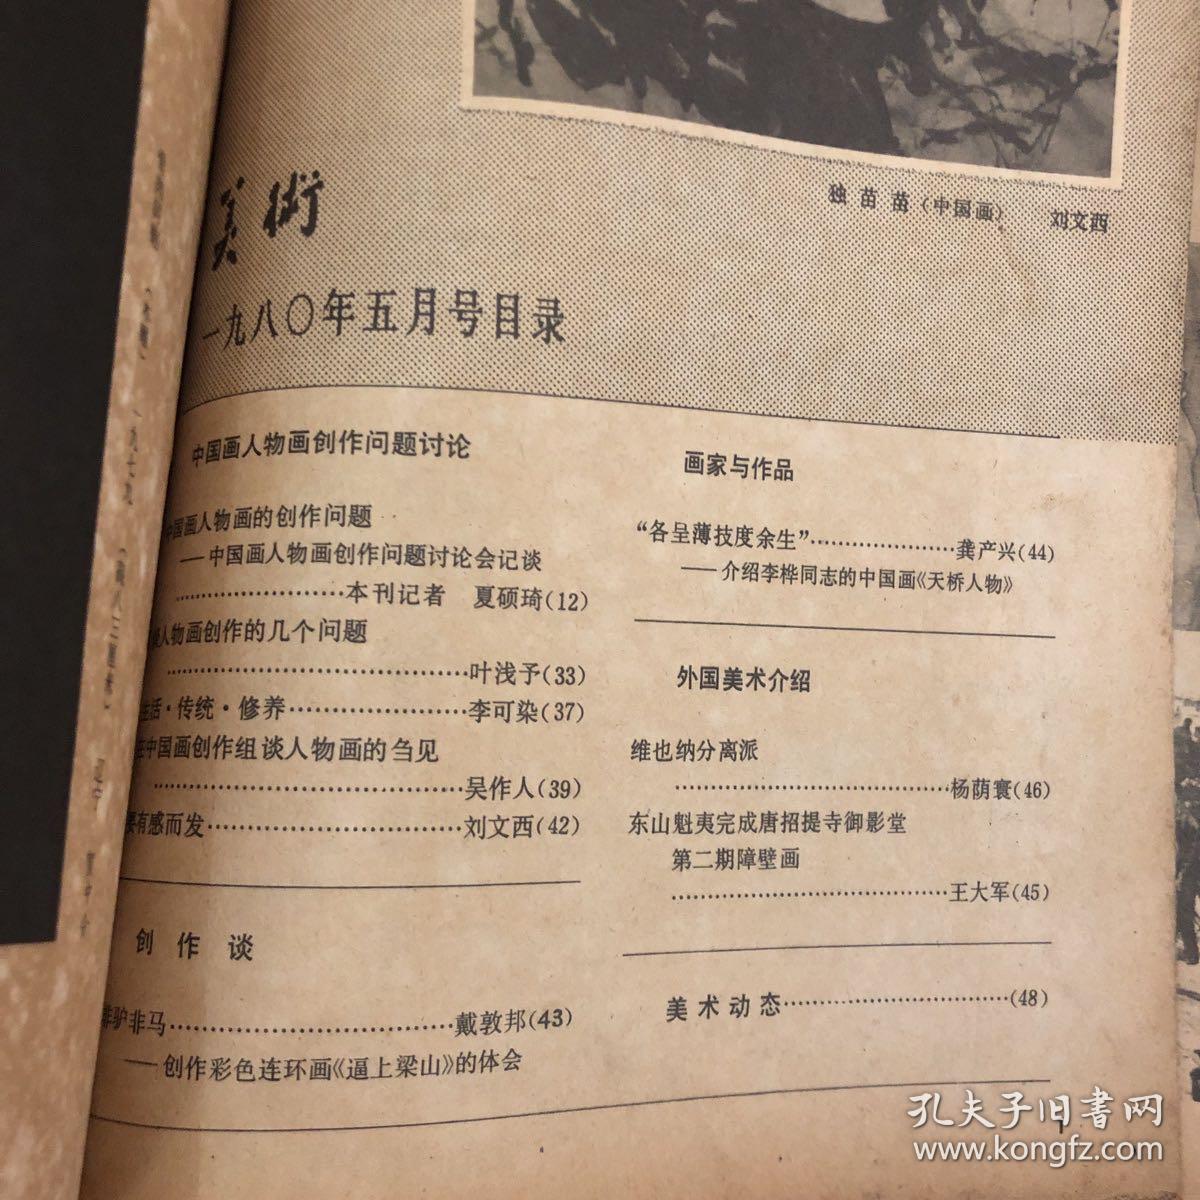 独苗苗(中国画) 刘文西
美術
一九八〇年五月号目录
中国画人物画创作问题讨论
中国画人物画的创作问题
——中国画人物画创作问题讨论会记谈
本刊记者 夏硕琦(12)
人物画创作的几个问题
叶浅予(33)
生活·传统·修养 李可染(37)
在中国画创作组谈人物画的刍见
吴作人(39)
要有感而发 刘文西(42)
创作谈
非驴非马 戴敦邦(43)
——创作彩色连环画《逼上梁山》的体会
画家与作品
“各呈薄技度余生” 龚产兴(44)
——介绍李桦同志的中国画《天桥人物》
外国美术介绍
维也纳分离派
杨荫寰(46)
东山魁夷完成唐招提寺御影堂
第二期障壁画
王大军(45)
美术动态 (48)
1
孔夫子旧书网
www.kongfz.com